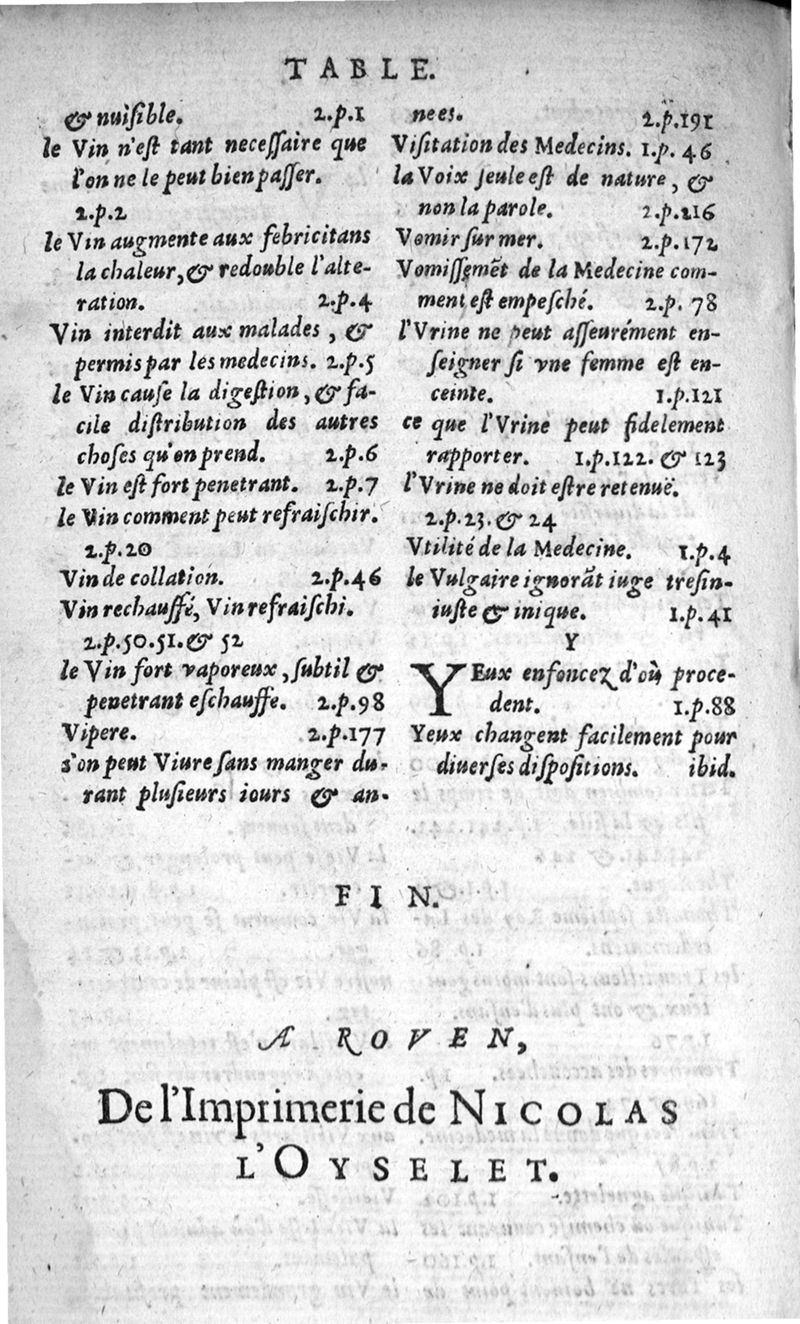 TABLE.
& nuiſible. 2.p.1
le Vin n'eſt tant neceſſaire que
l'on ne le peut bien paſſer.
2.p.2
le Vin augmente aux febricitans
la chaleur, & redouble l'alte-
ration. 2.p.4
Vin interdit aux malades, &
permis par les medecins. 2.p.5
le Vin cauſe la digeſtion, & fa-
cile diſtribution des autres
choſes qu'on prend. 2.p.6
le Vin eſt fort penetrant. 2.p.7
le Vin comment peut refraiſchir.
2.p.20
Vin de collation. 2.p.46
Vin rechauffé, Vin refraiſchi.
2.p.50.51.& 52
le Vin fort vaporeux, ſubtil &
penetrant eſchauffe. 2.p.98
Vipere. 2.p.177
s'on peut Viure ſans manger du-
rant pluſieurs iours & an-
nees. 2.p.191
Viſitation des Medecins. 1.p.46
la Voix ſeule eſt de nature, &
non la parole. 2.p.216
Vomir ſur mer. 2.p.172
Vomiſſemẽt de la Medecine com-
ment eſt empeſché. 2.p.78
l'Vrine ne peut aſſeurément en-
ſeigner ſi vne femme eſt en-
ceinte. 1.p.121
ce que l'Vrine peut fidelement
rapporter. 1.p.122. & 123
l'Vrine ne doit eſtre retenuë.
2.p.23.& 24
Vtilité de la Medecine. 1.p.4
le Vulgaire ignorãt iuge treſin-
iuſte & inique. 1.p.41
Y
YEux enfoncez d'où proce-
dent. 1.p.88
Yeux changent facilement pour
diuerſes diſpoſitions. ibid.
FIN.
A ROVEN,
De l'Imprimerie de NICOLAS
L'OYSELET.